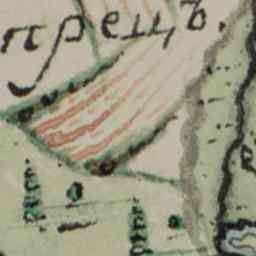 прецъ.